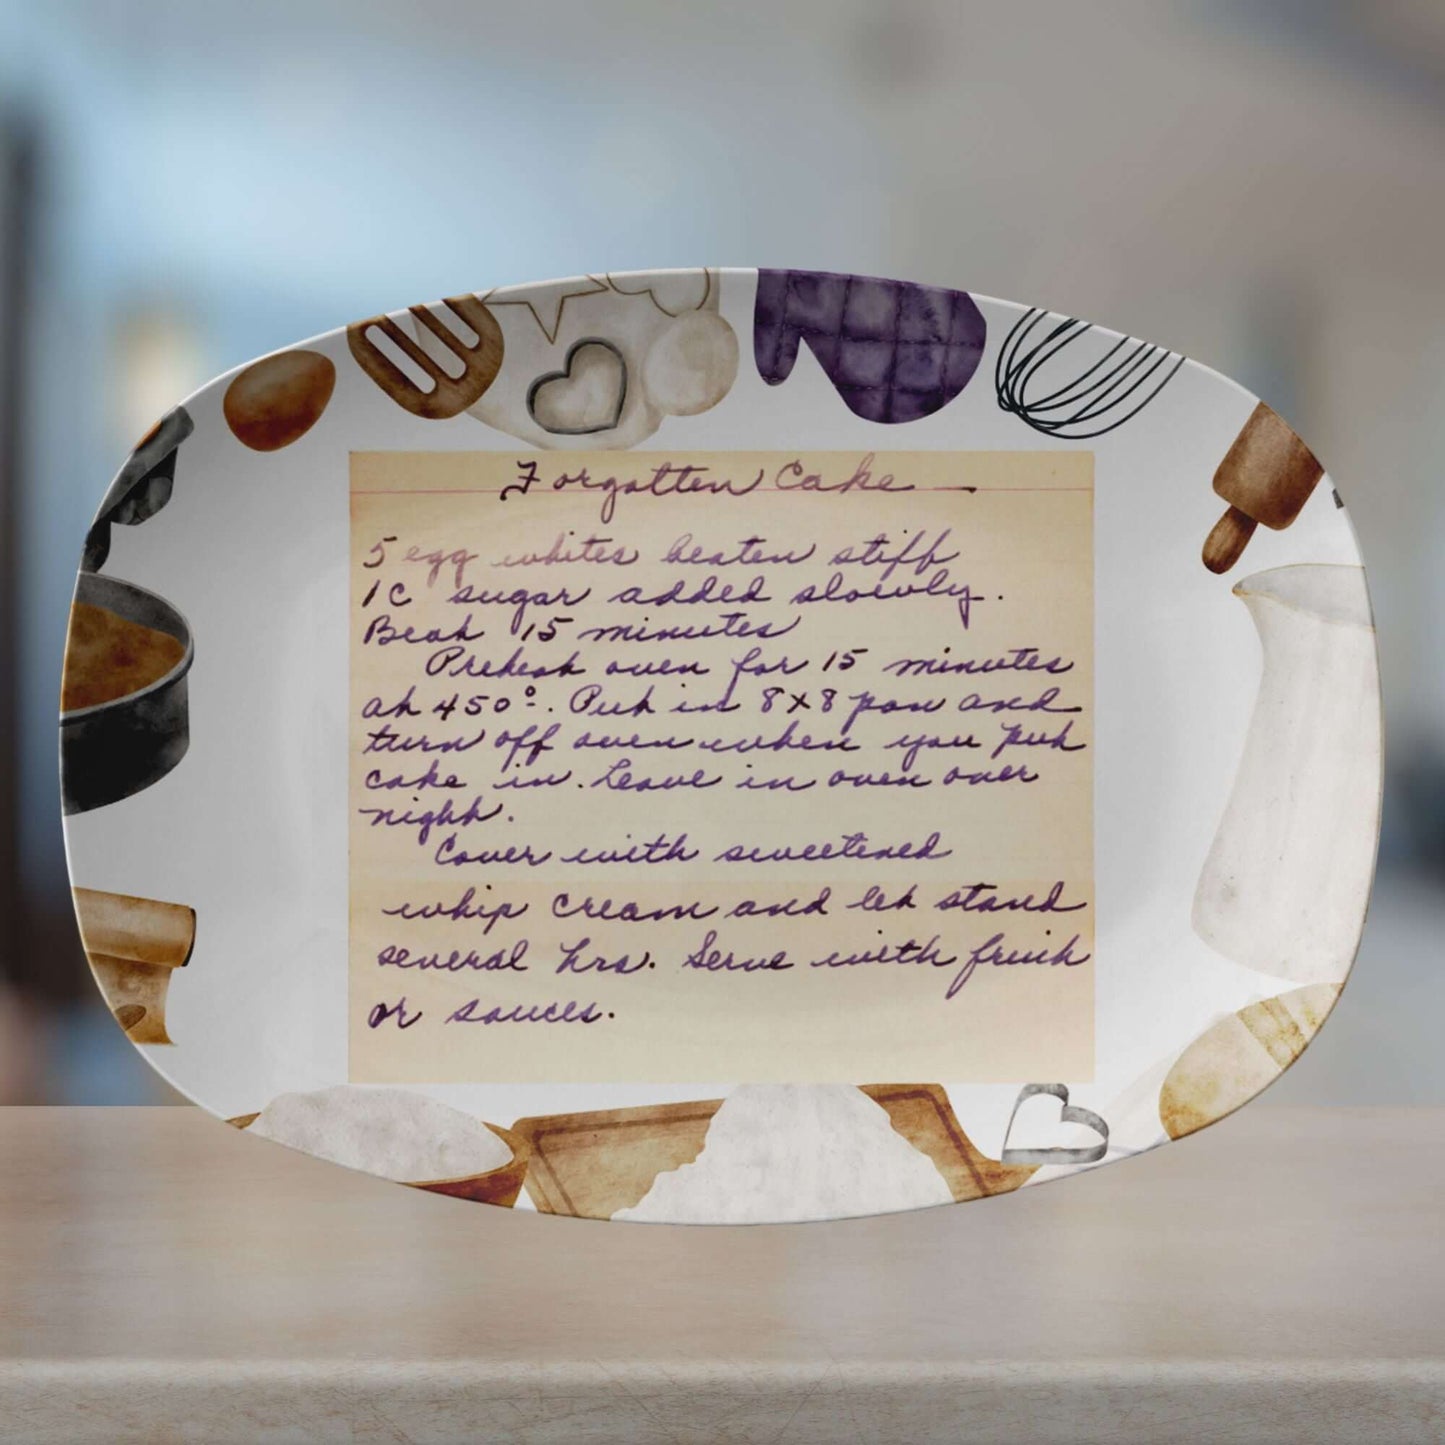 Forgotten Cake -
5 egg whites beaten stiff
1 C sugar added slowly.
Beat 15 minutes
Preheat oven for 15 minutes
at 450°. Put in 8x8 pan and
turn off oven when you put
cake in. Leave in oven over
night.
Cover with sweetened
whip cream and let stand
several hrs. Serve with fruit
or sauces.